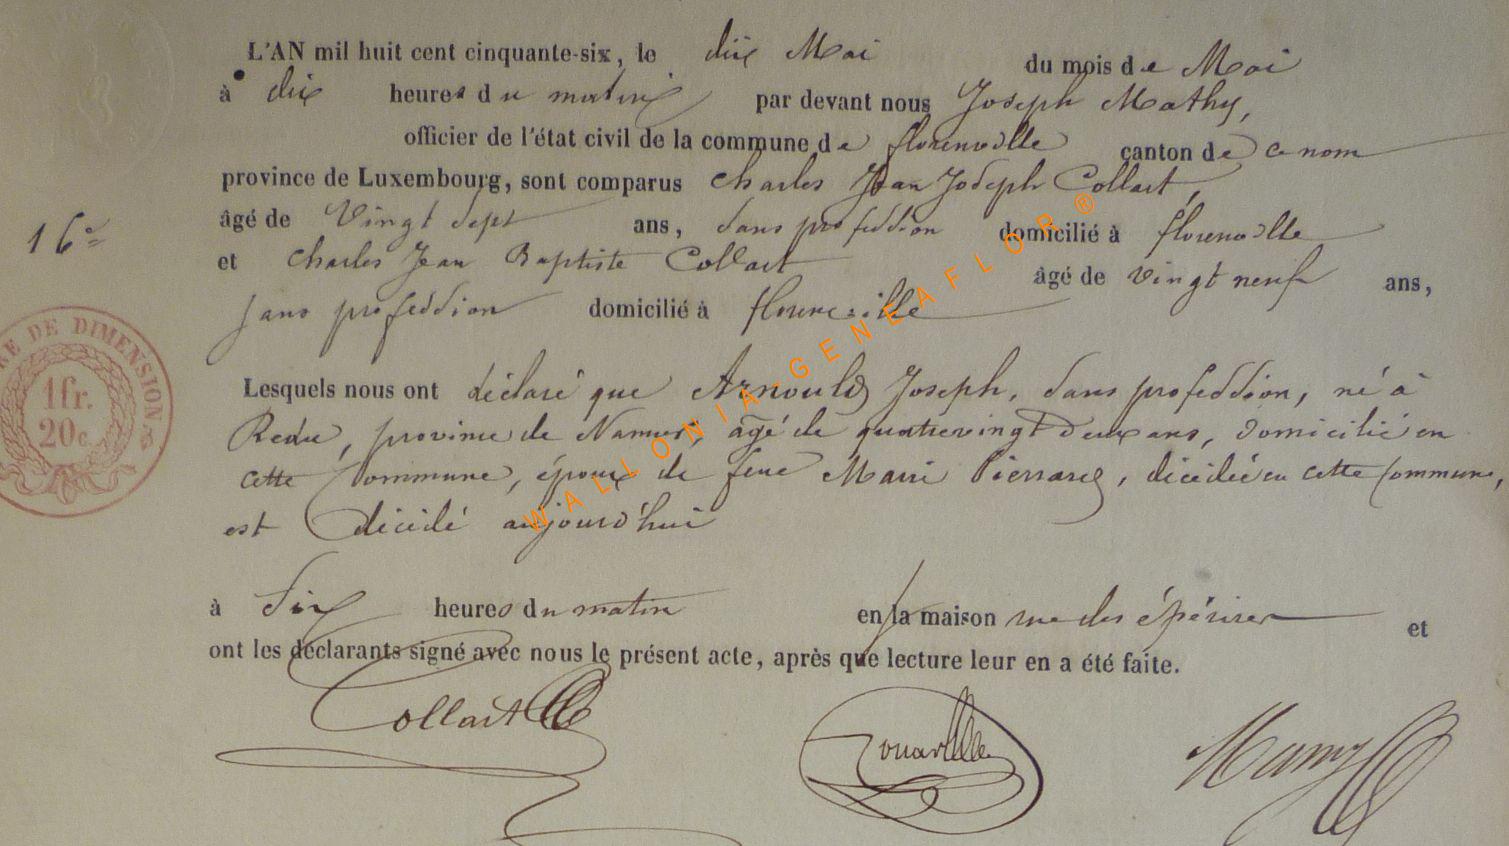 L'AN mil huit cent cinquante-six, le dix Mai du mois de Mai
à dix heures du matin par devant nous Joseph Mathy,
officier de l'état civil de la commune de florenville canton de ce nom
province de Luxembourg, sont comparus Charles Jean Joseph Collart,
16e
âgé de Vingt sept ans, sans profession domicilié à florenville
et Charles Jean Baptiste Collart âgé de vingt neuf ans,
sans profession domicilié à florenville
Lesquels nous ont déclaré que Arnould Joseph, sans profession, né à
Redu, province de Namur, âgé de quatrevingt deux ans, domicilié en
cette Commune, époux de feue Marie Pierrard, décédée en cette Commune,
est décédé aujourd'hui
à Six heures du matin en la maison rue des et
ont les déclarants signé avec nous le présent acte, après que lecture leur en a été faite.
Collart
RE DE DIMENSION
1fr.
20c.
WALLONIA-GENEAFLOR®